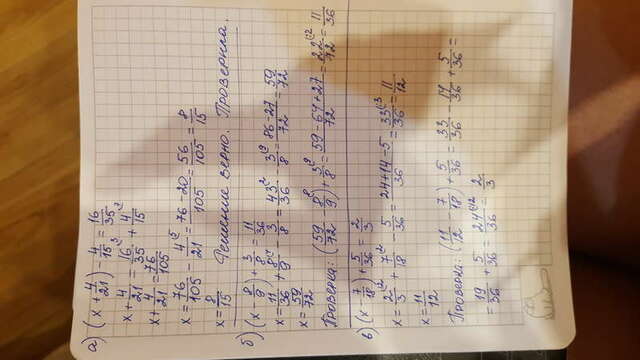 а) (x + 4/21) - 4/15 = 16/35
x + 4/21 = 16/35 (3 + 4/15 (7
x + 4/21 = 76/105
x = 76/105 - 4/21 (5 = 76-20/105 = 56/105 = 8/15
x = 8/15 Решение верно. Проверила.
б) (x - 8/9) + 3/8 = 11/36
x = 11/36 + 8/9 (4 - 3/8 = 43/36 (2 - 3/8 (9 = 86-27/72 = 59/72
x = 59/72
Проверка: (59/72 - 8/9 (8) + 3/8 (9 = 59-64+27/72 = 22/72 (:2 = 11/36
в) (x - 7/18) + 5/36 = 2/3
x = 2/3 (12 + 7/18 (2 - 5/36 = 24+14-5/36 = 33/36 (:3 = 11/12
x = 11/12
Проверка: (11/12 - 7/18) + 5/36 = 33/36 - 14/36 + 5/36 =
= 19/36 + 5/36 = 24/36 (:12 = 2/3